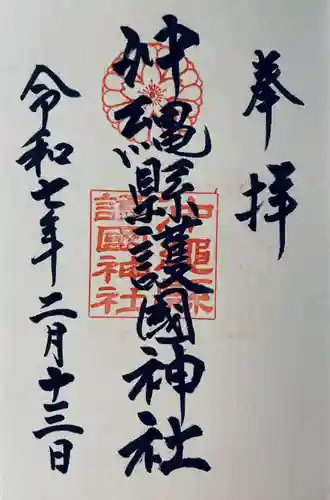 奉拝
沖縄縣護國神社
令和七年二月十三日
沖縄縣
護國神社